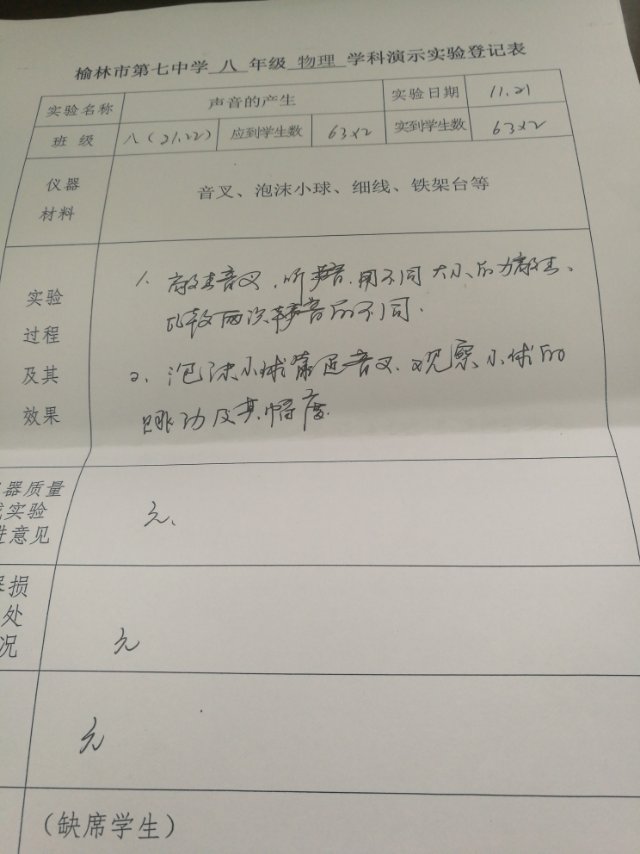 榆林市第七中学 八 年级 物理 学科演示实验登记表
实验名称 声音的产生 实验日期 11.21
班 级 八（21.22） 应到学生数 63×2 实到学生数 63×2
仪器
材料
音叉、泡沫小球、细线、铁架台等
实验
过程
及其
效果
1. 敲击音叉，听声音，用不同大小的力敲击、
比较两次声音的不同.
2. 泡沫小球靠近音叉，观察小球的
跳动及其幅度.
器质量
实验
进意见
无、
损
处
况
无
无
（缺席学生）